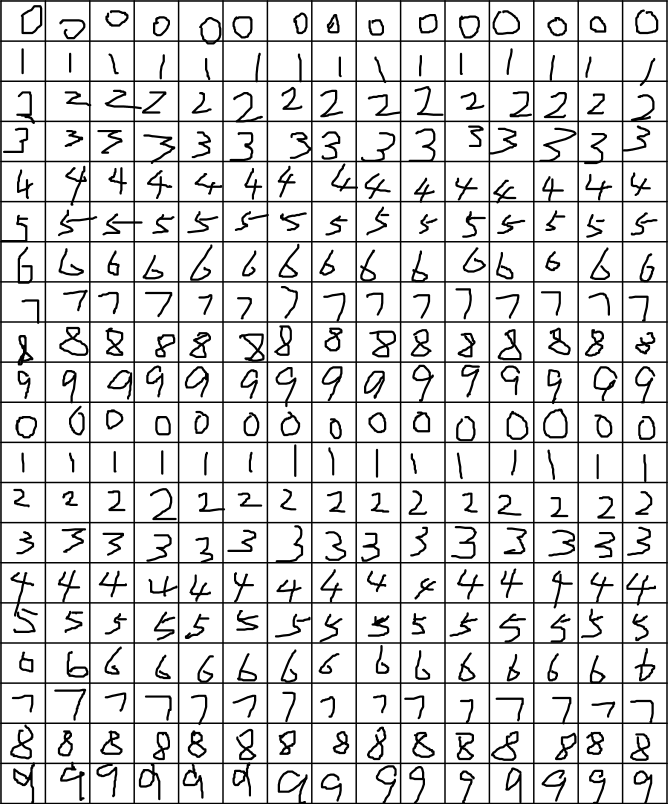 0 0 0 0 0 0 0 0 0 0 0 0 0 0 0
1 1 1 1 1 1 1 1 1 1 1 1 1 1 1
2 2 2 2 2 2 2 2 2 2 2 2 2 2 2
3 3 3 3 3 3 3 3 3 3 3 3 3 3 3
4 4 4 4 4 4 4 4 4 4 4 4 4 4 4
5 5 5 5 5 5 5 5 5 5 5 5 5 5 5
6 6 6 6 6 6 6 6 6 6 6 6 6 6 6
7 7 7 7 7 7 7 7 7 7 7 7 7 7 7
8 8 8 8 8 8 8 8 8 8 8 8 8 8 8
9 9 9 9 9 9 9 9 9 9 9 9 9 9 9
0 0 0 0 0 0 0 0 0 0 0 0 0 0 0
1 1 1 1 1 1 1 1 1 1 1 1 1 1 1
2 2 2 2 2 2 2 2 2 2 2 2 2 2 2
3 3 3 3 3 3 3 3 3 3 3 3 3 3 3
4 4 4 4 4 4 4 4 4 4 4 4 4 4 4
5 5 5 5 5 5 5 5 5 5 5 5 5 5 5
6 6 6 6 6 6 6 6 6 6 6 6 6 6 6
7 7 7 7 7 7 7 7 7 7 7 7 7 7 7
8 8 8 8 8 8 8 8 8 8 8 8 8 8 8
9 9 9 9 9 9 9 9 9 9 9 9 9 9 9